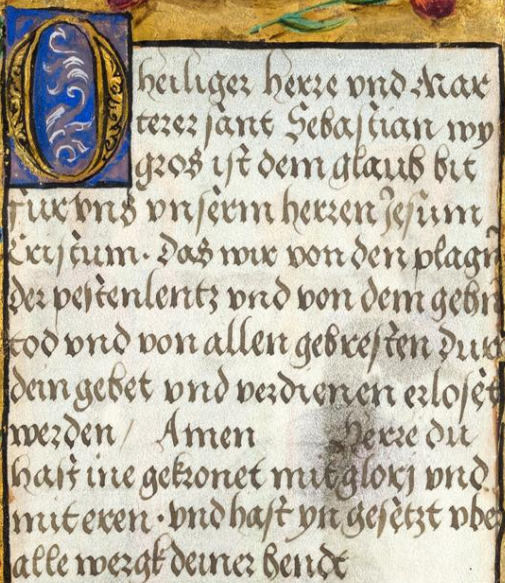 O heiliger herre vnd Mar
terer sant Sebastian wy
gros ist dem glaub bit
fur vns vnserm herren Jesum
Cristum. Das wir von den plagn
der pestenlentz vnd von dem gehn
tod vnd von allen gebresten durch
dein gebet vnd verdienen erloset
werden / Amen Herre du
hast ine gekronet mit glorj vnd
mit eren. vnd hast yn gesetzt vber
alle wergk deiner hendt